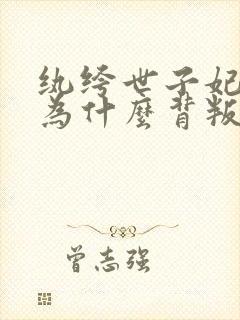 纨绔世子妃
為什麼背叛
曾志强